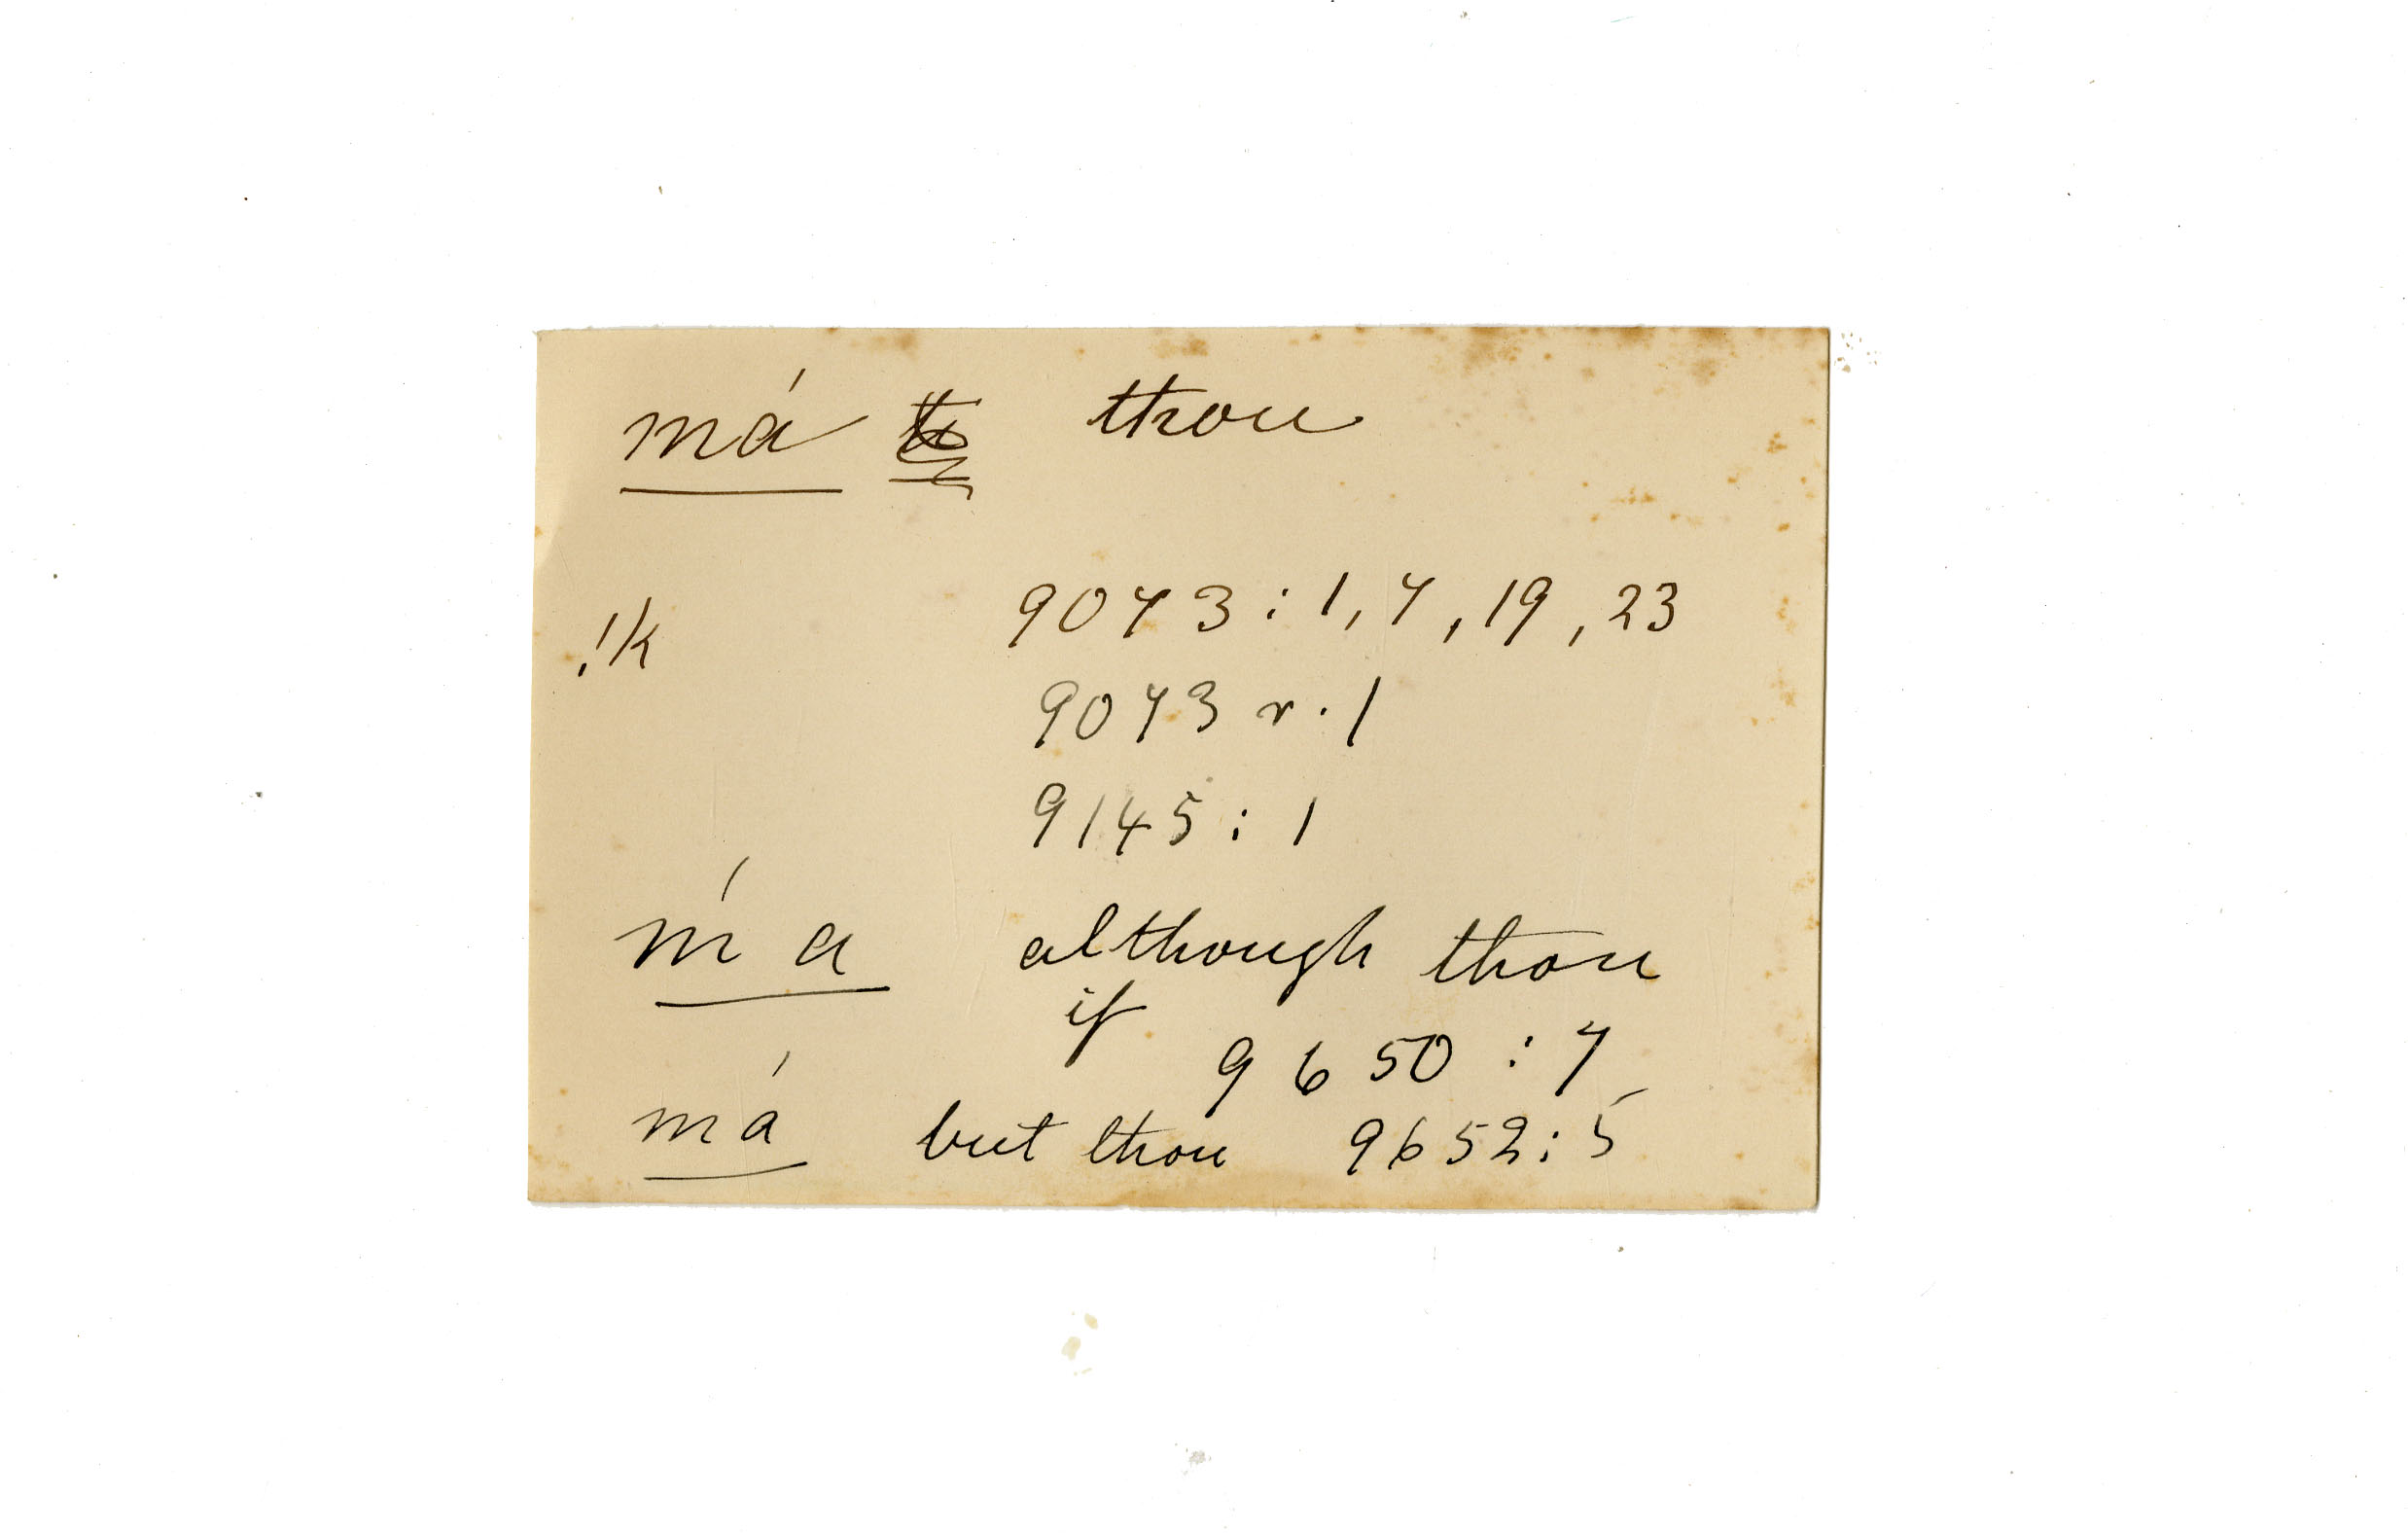 má thou
!k 9073 : 1, 7, 19, 23
9073 r. 1
9145 : 1
ḿ a although thou
if
9650 : 7
má but thou 9652 : 5